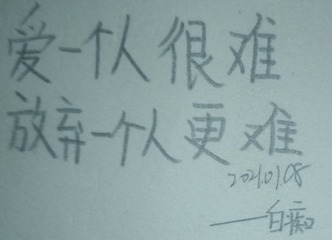 爱一个人很难
放弃一个人更难
2021.01.08
——白痴